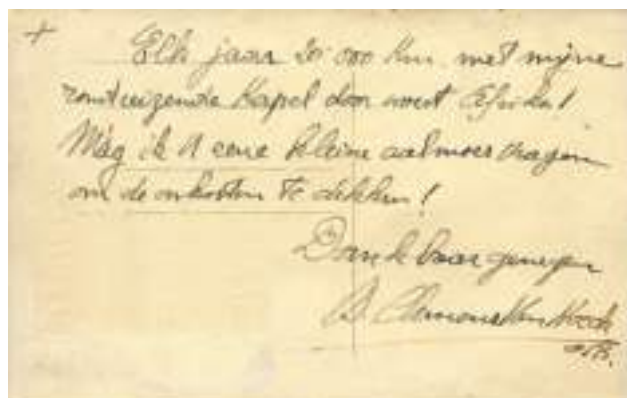 + Elk jaar 20.000 Km met mijne
rondreizende Kapel door west Afrika!
Mag ik U eene kleine aalmoes vragen
om de onkosten te dekken!
Dankbaar genegen